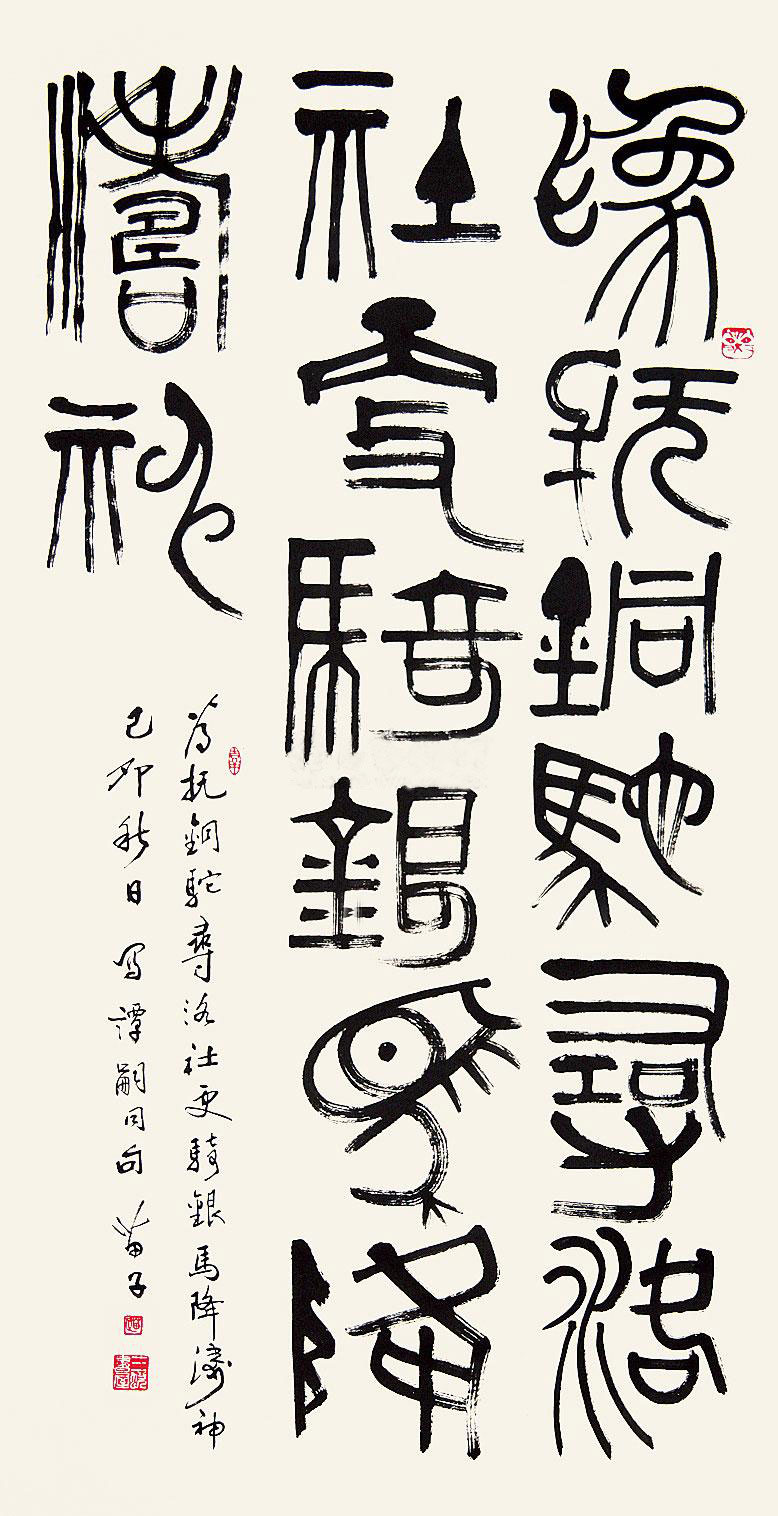 為抚銅駝尋洛
社更騎銀馬降
濤神
為抚銅駝尋洛社更騎銀馬降濤神
己卯秋日写譚嗣同句苗子